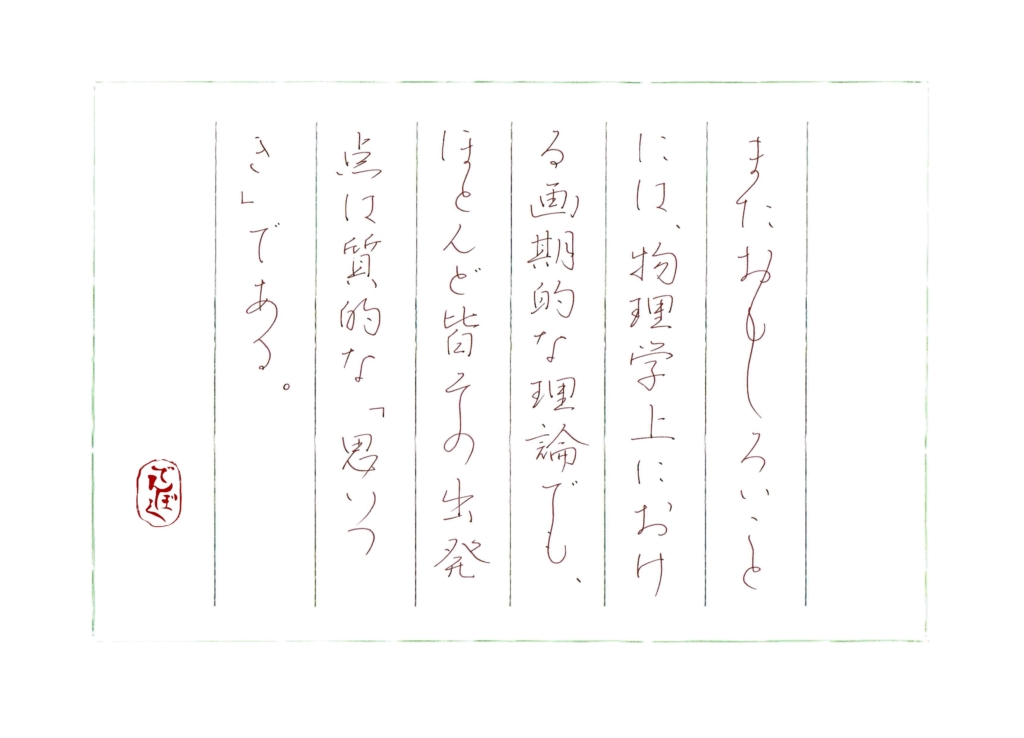 またおもしろいこと
には、物理学上におけ
る画期的な理論でも、
ほとんど皆その出発
点は質的な「思いつ
き」である。
でんぼく